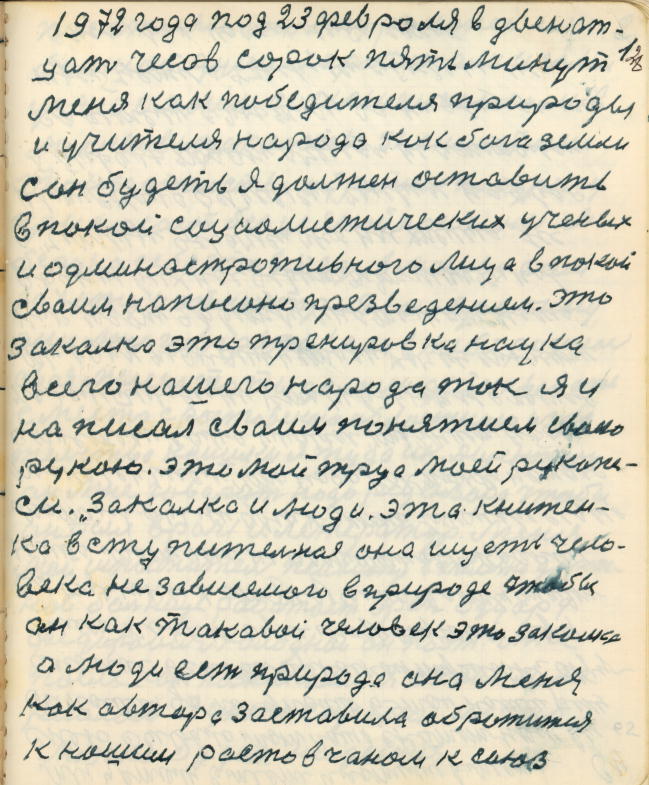 1972 года под 23 февроля в двенат-
цат чесов сорок пять минут
меня как победителя природы
и учителя народа как бога земли
сон будеть я должен оставить
в покой социолистических ученых
и админостротивного лица в покой
своим написоно презведением. это
закалко это тренировка наука
всего нашего народа так я и
на писал своим понятием свою
рукою. это мой труд моей рукопи-
си. „Закалка и люди. эта книжен-
ка вступителная она ищеть чело-
века не зависемого в природе чтобы
он как таковой человек это закалка
а люди ест природа она меня
как автора заставила обротится
к нашим ростовчаном к союз